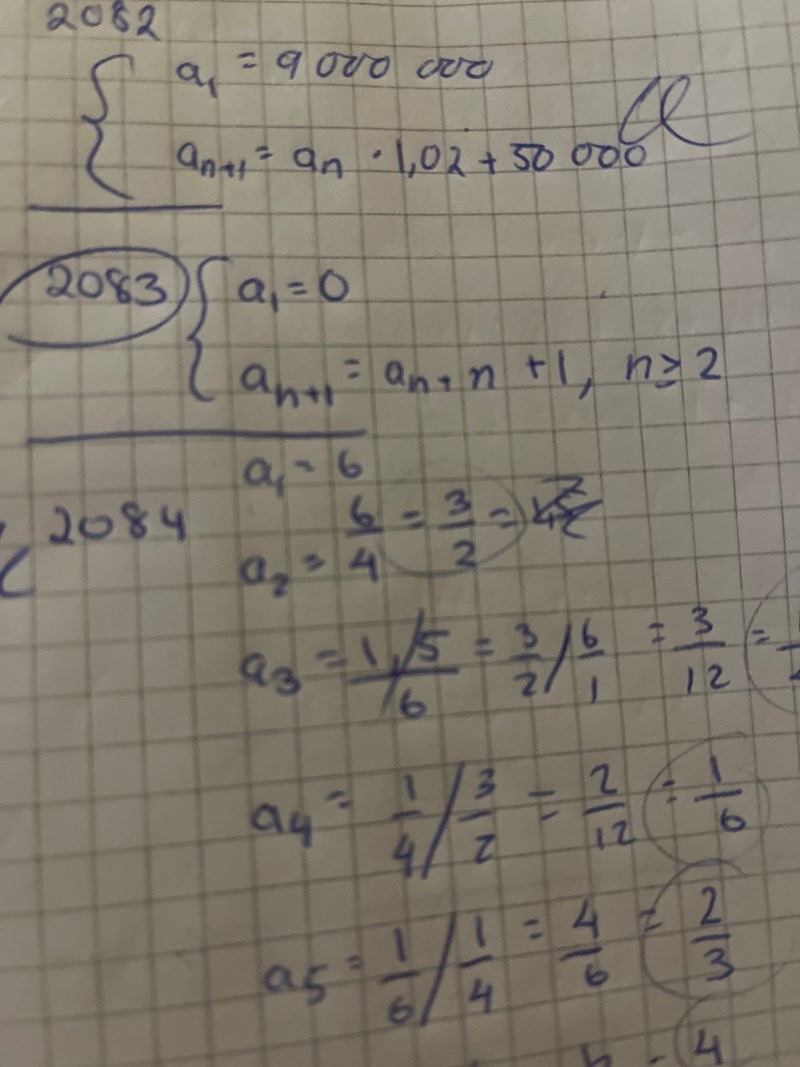 2082
a₁ = 9 000 000
aₙ₊₁ = aₙ · 1,02 + 50 000
2083 a₁ = 0
aₙ₊₁ = aₙ + n + 1, n ≥ 2
a₁ = 6
2084
a₂ = 6/4 = 3/2 =
a₃ = 1,5/6 = 3/2 / 6/1 = 3/12 =
a₄ = 1/4 / 3/2 = 2/12 = 1/6
a₅ = 1/6 / 1/4 = 4/6 = 2/3
4